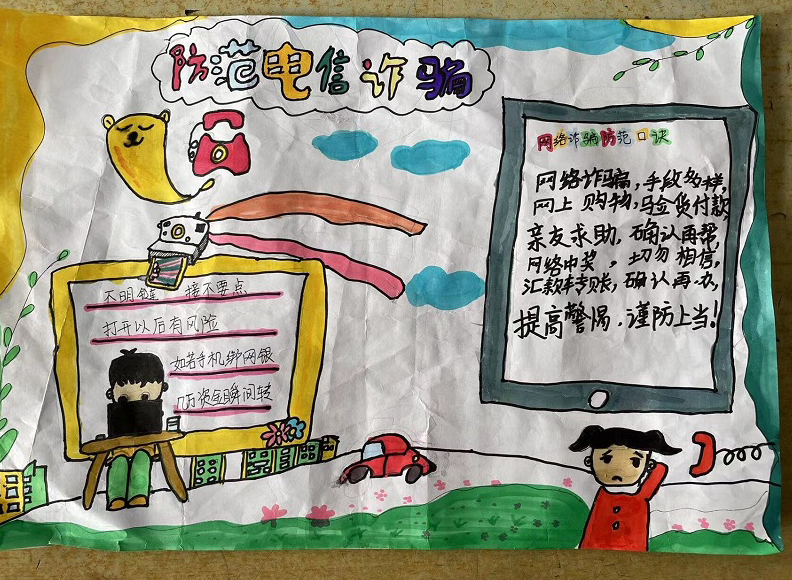 防范电信诈骗
网络诈骗防范口诀
网络诈骗,手段多样,
网上购物,验货付款
亲友求助,确认再帮,
网络中奖,切勿相信,
汇款转账,确认再办,
提高警惕,谨防上当!
不明链 接不要点
打开以后有风险
如若手机绑网银
几万资金瞬间转